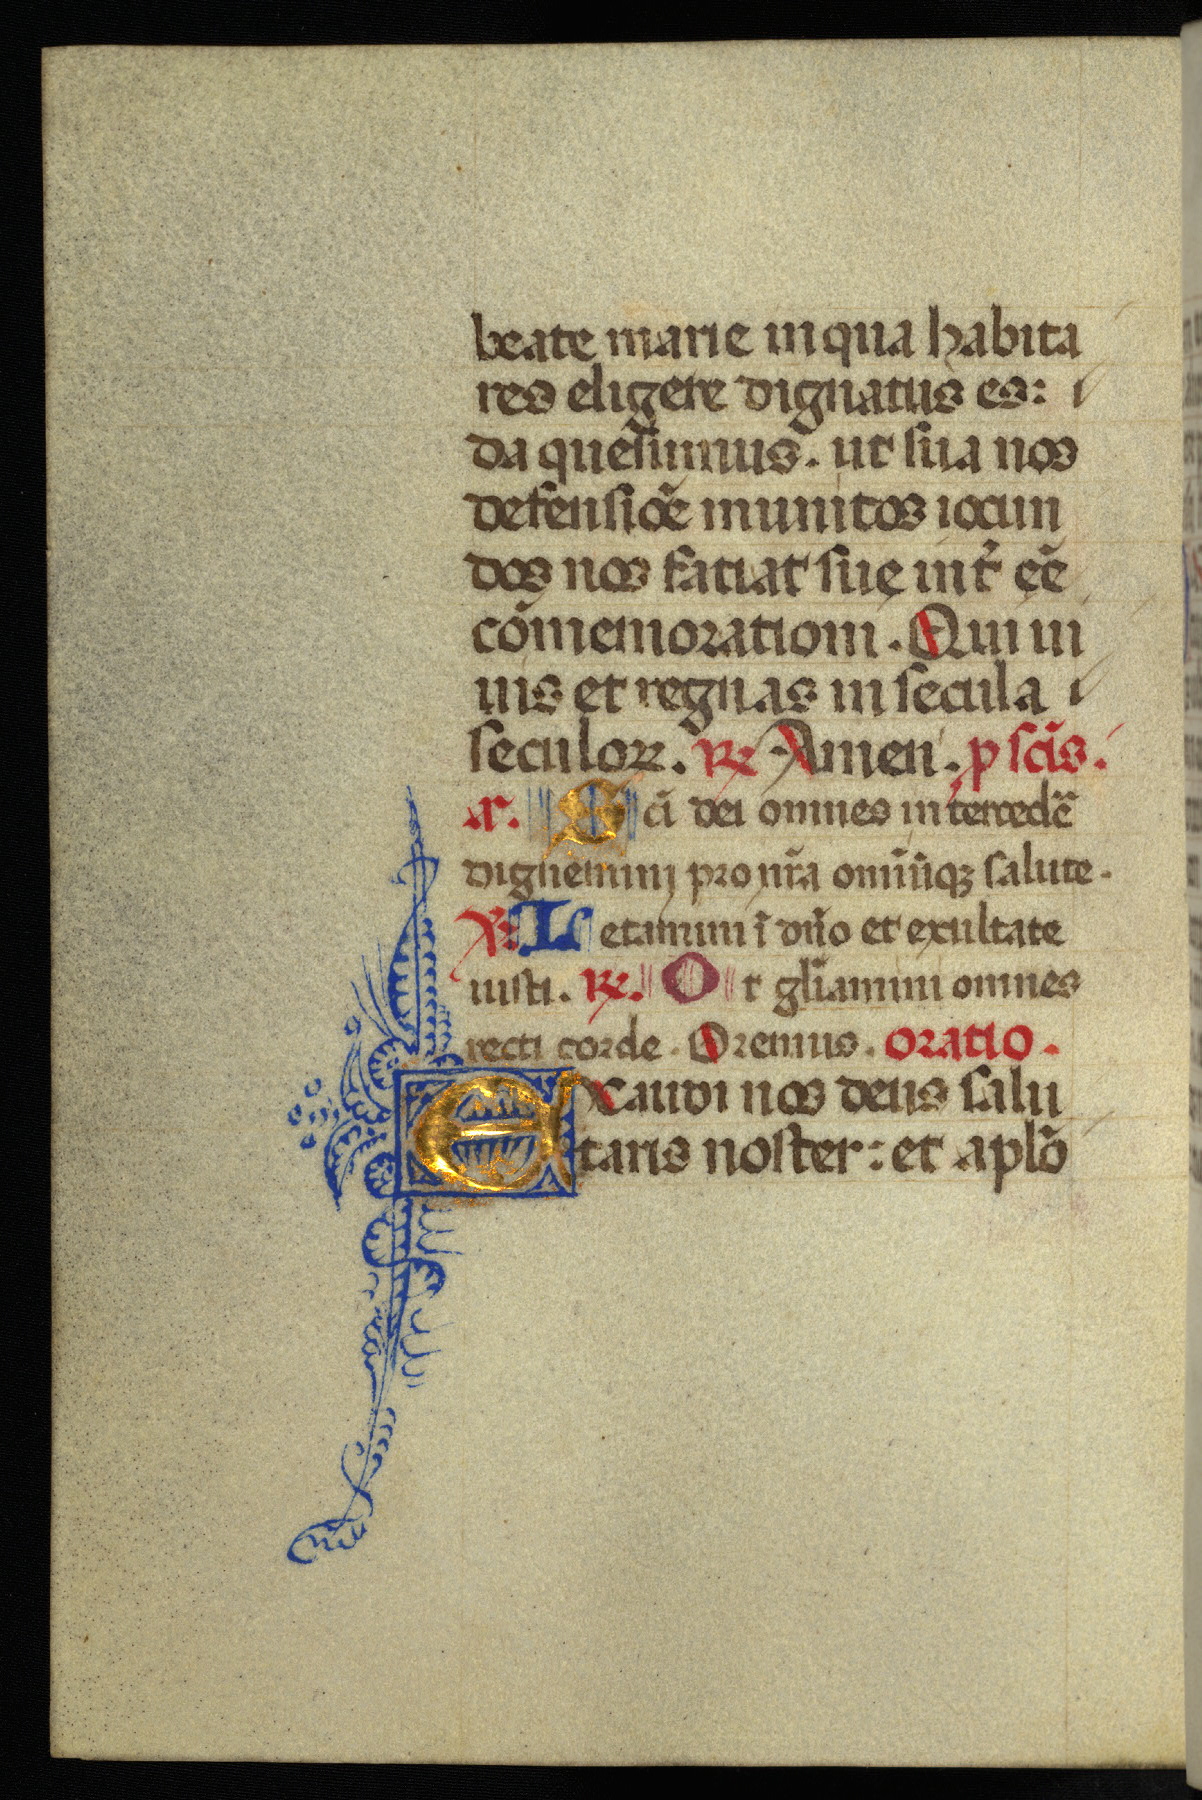 beate marie in qua habita
res eligere dignatus es:
da quesumus. ut sua nos
defensiõe munitos iocun
dos nos fatiat sue int̉ eẽ
cõmemorationi. Qui ui
uis et regnas in secula
seculoꝝ. ℞ Amen. ꝓ sc̃is.
añ. Sc̃i dei omnes intercedẽ
dignemini pro nr̃a omniũqꝫ salute.
℣. Letamini ĩ dño et exultate
iusti. ℞. Et gl̃iamini omnes
recti corde. Oremus. oratio.
Exaudi nos deus salu
taris noster: et apl̃o